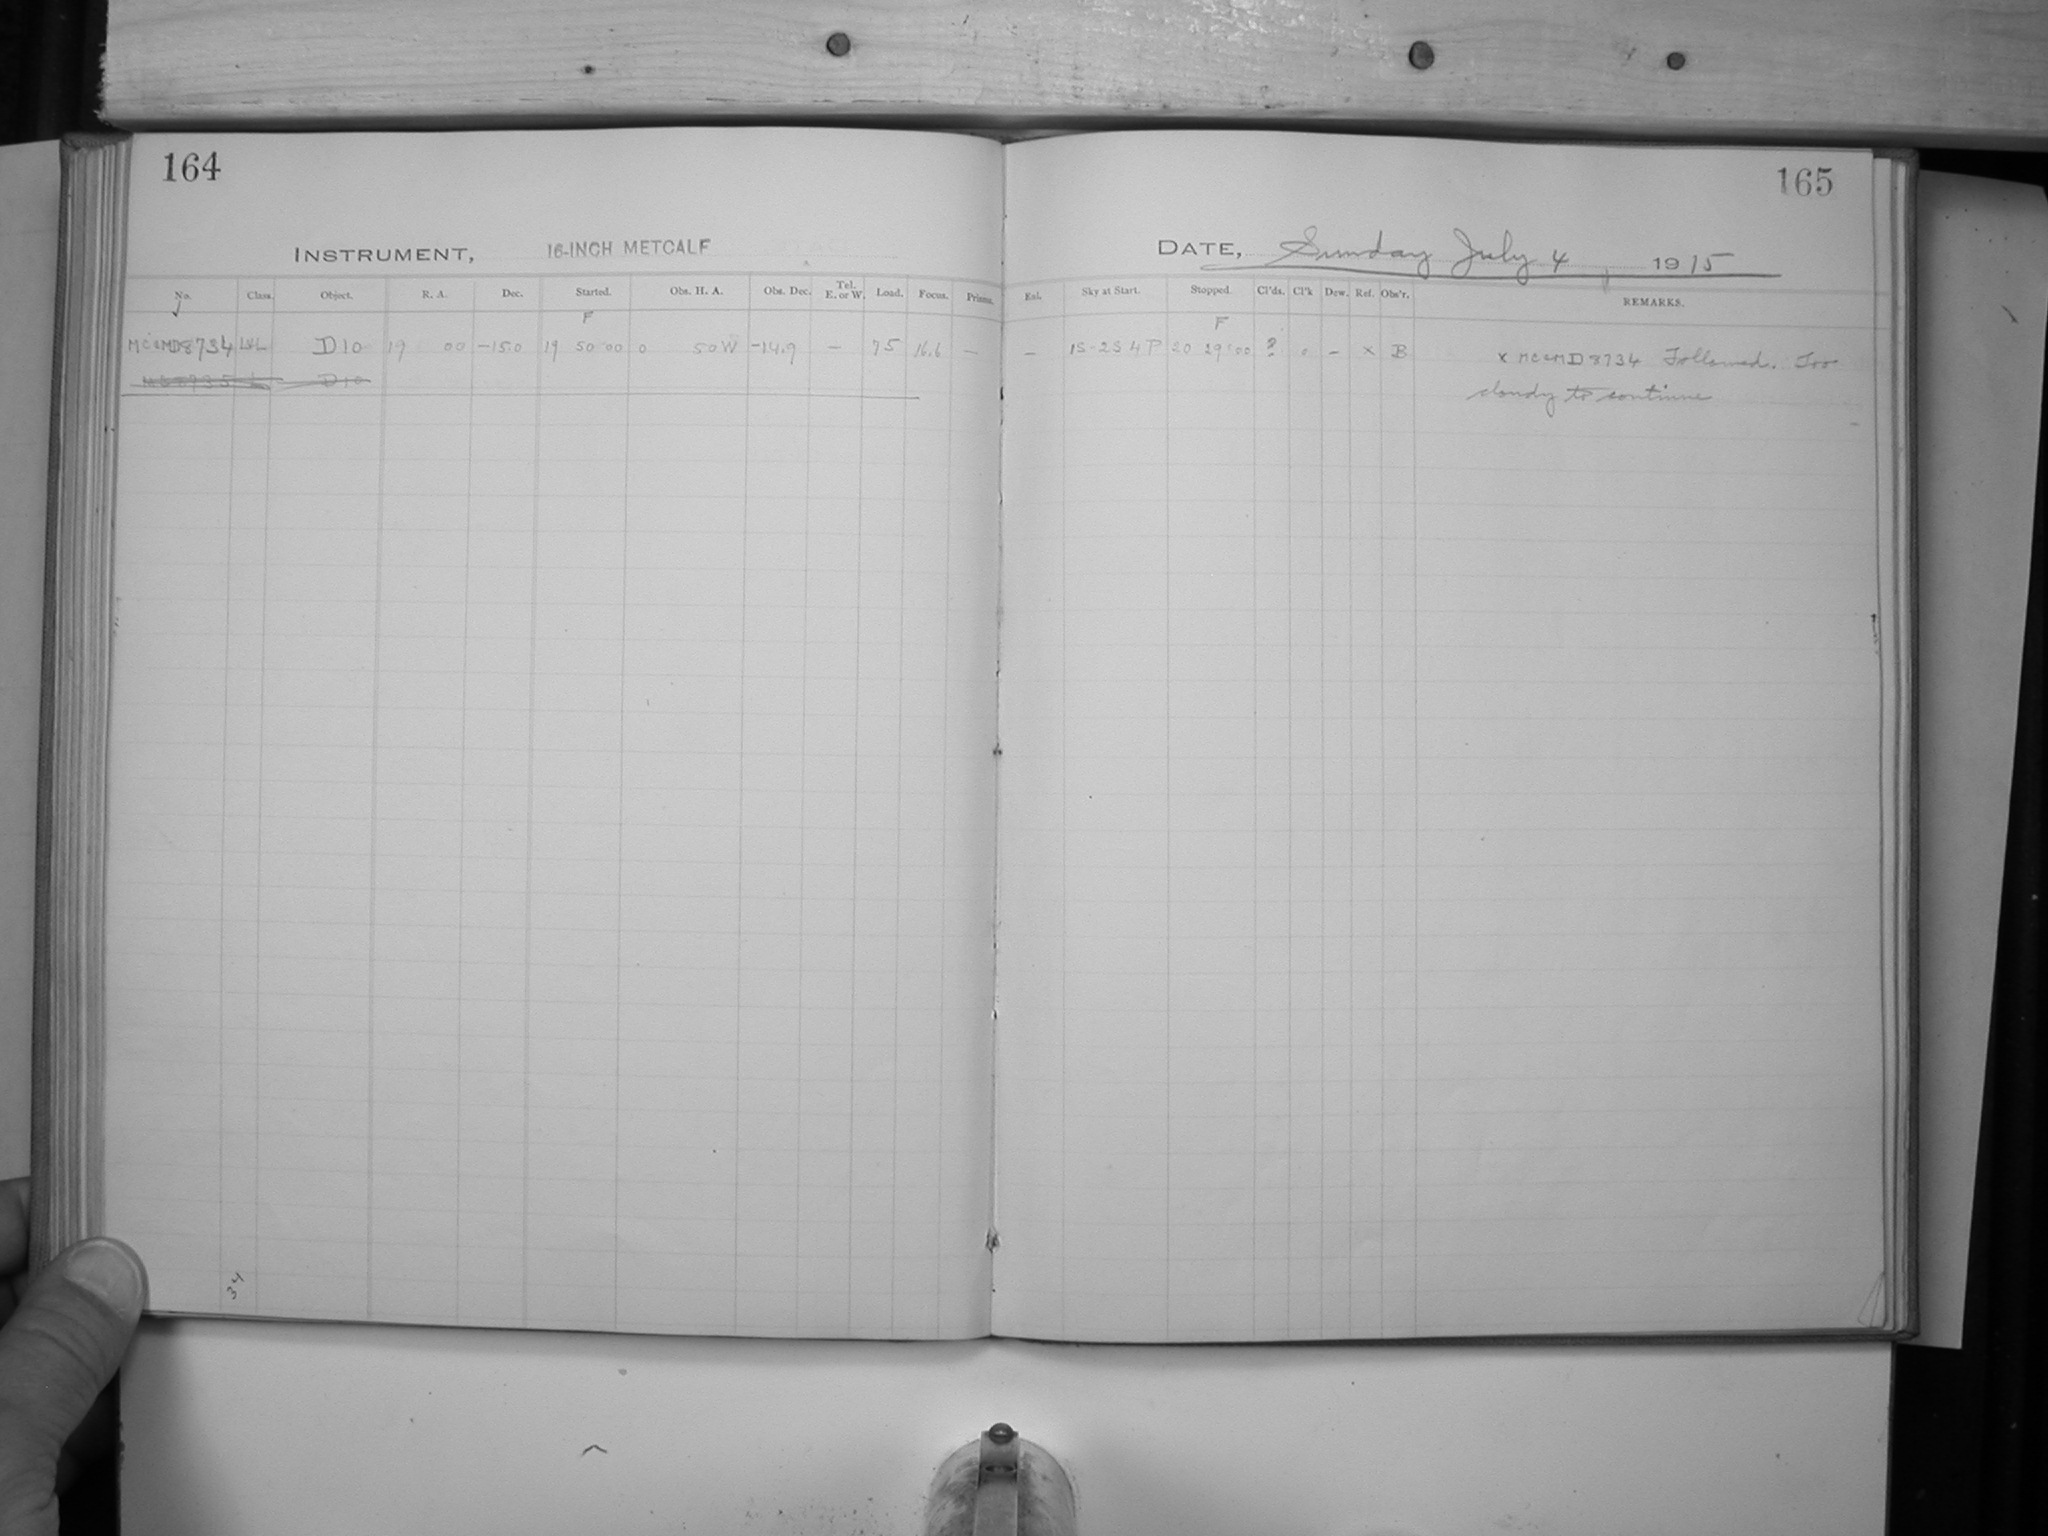 164
165
INSTRUMENT, 16-INCH METCALF
DATE, Sunday July 4, 1915
No. Class. Object. R. A. Dec. Started. Obs. H. A. Obs. Dec. Tel. E. or W. Load. Focus. Prisms. Eal. Sky at Start. Stopped. Cl'ds. Cl'k Dew. Ref. Obs'r. REMARKS.
F F
MC&MD8734 L&L D10 19 00 -15.0 19 50 00 0 50W -14.9 — 75 16.6 — — 1S-2S 4P 20 29 00 ? 0 – x B x MC&MD8734 Followed. Too
MC8735 L D10 cloudy to continue
34